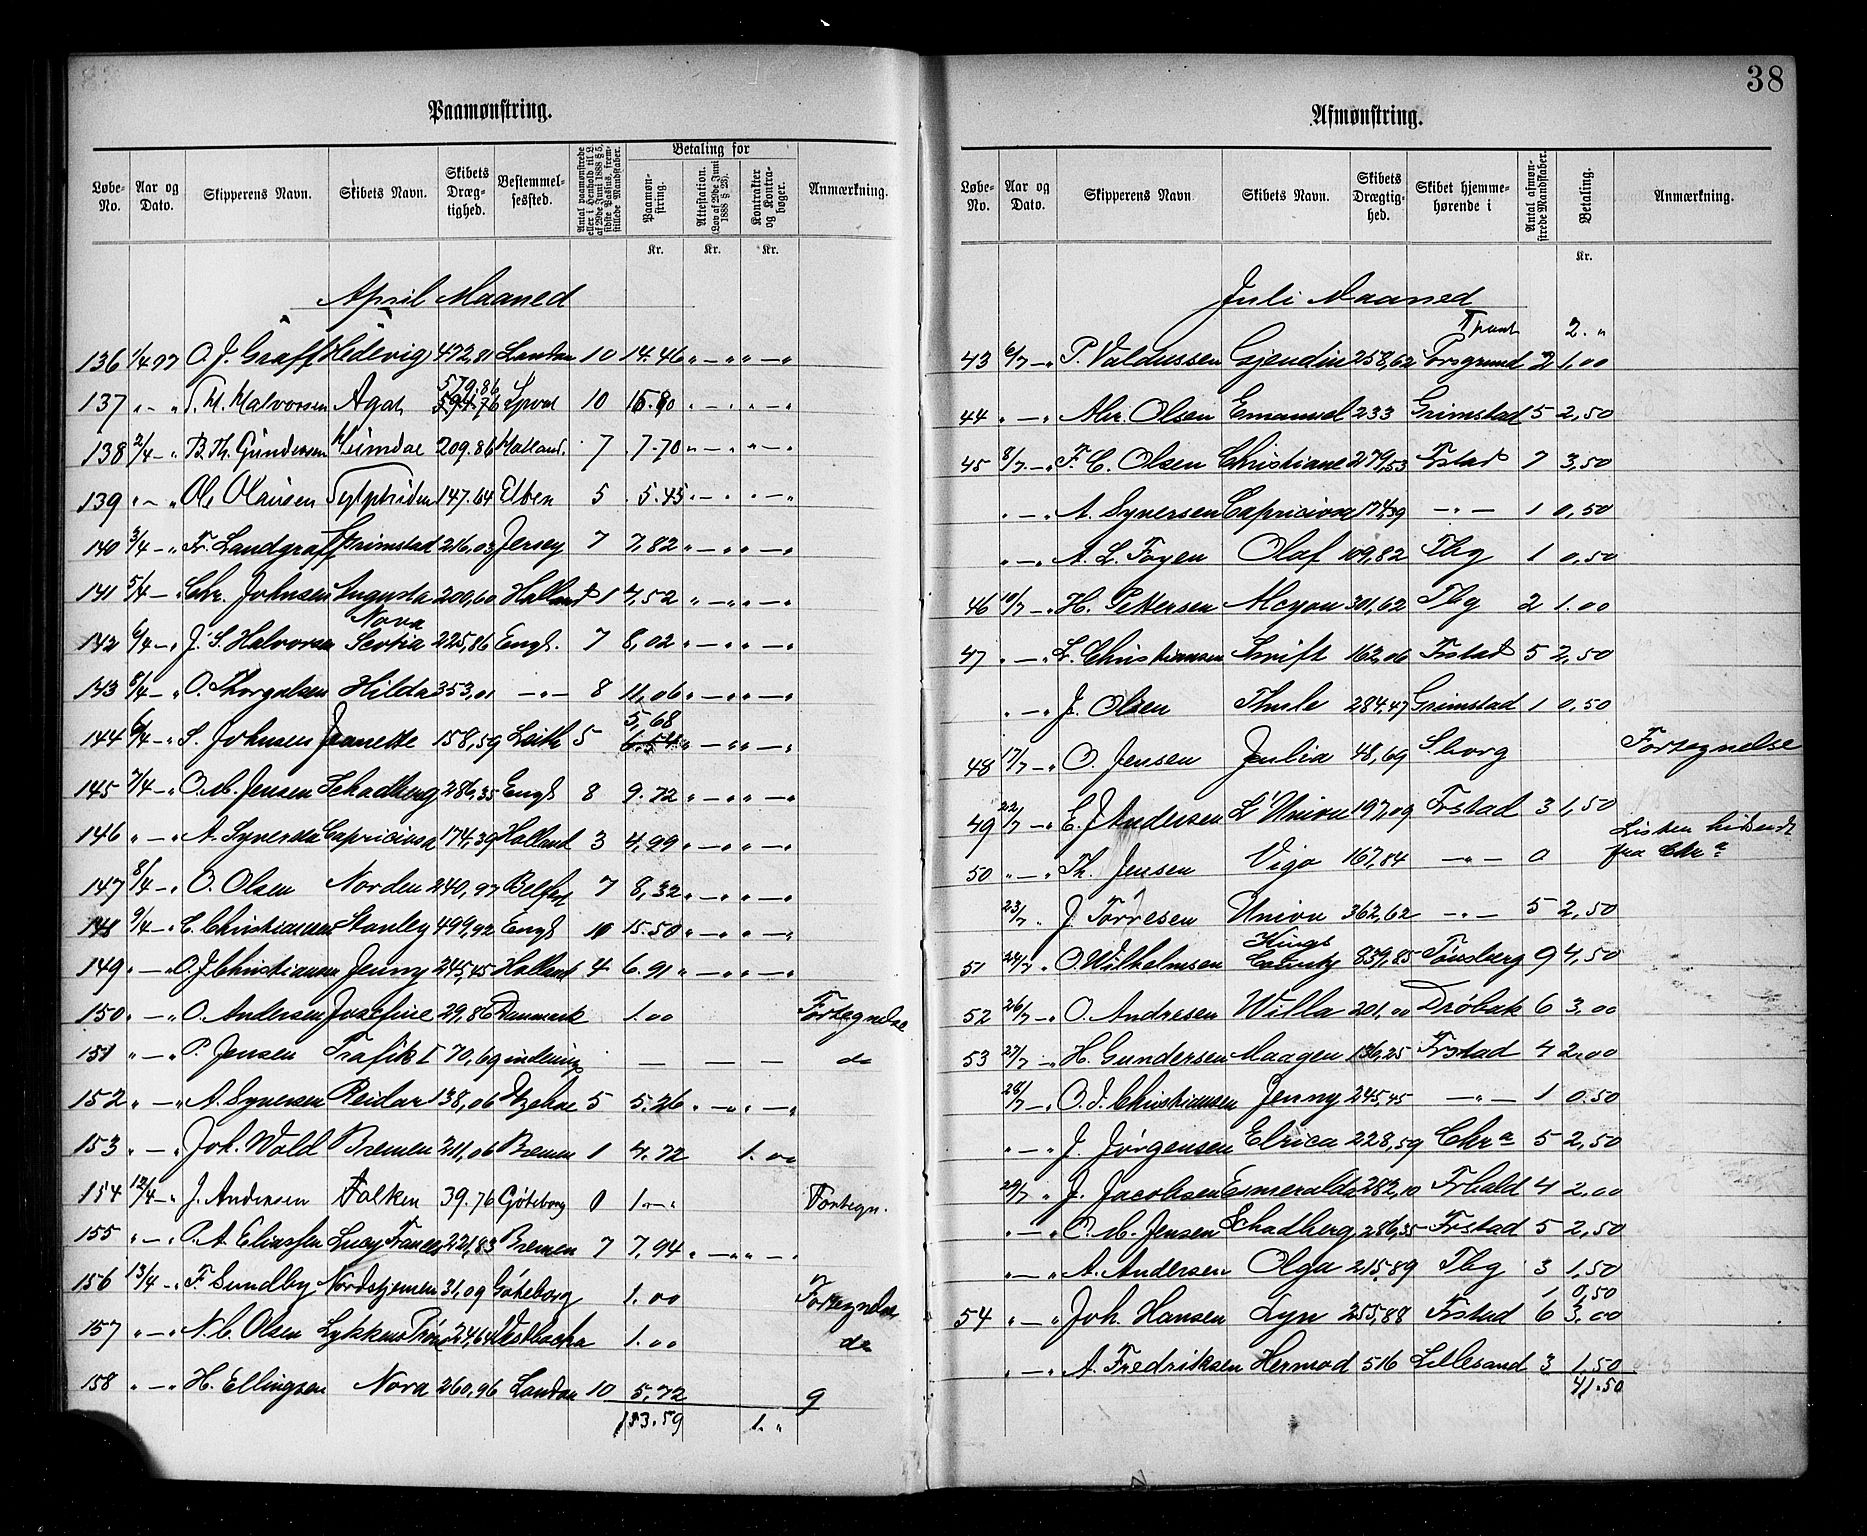 38
Paamønstring.
Løbe-No. Aar og Dato. Skipperens Navn. Skibets Navn. Skibets Dræg-tighed. Bestemmel-sessted. Antal paamønstrede eller i Henhold til L. af 29de Juni 1888 § 5, sidste Passus, frem-stillede Mandskaber. Betaling for Paamøn-string. Attestation. (Lov af 29de Juni 1888 § 23). Kontrakter og Kontra-bøger. Anmærkning.
Kr. Kr. Kr.
April Maaned
136 1/4 97 O. J. Graff Hedevig 472,81 London 10 14.46 " — " " — "
579.86
137 " — " T. M. Halvorsen Agat 594.76 Lpool 10 15.80 " — " " — "
138 2/4 — " B. Th. Gundersen Heimdal 209.86 Holland. 7 7.70 " — " " — "
139 " — " Ole Olausen Sylphiden 147.64 Elben 5 5.45 " — " " — "
140 3/4 — " Fr. Landgraff Grimstad 216,03 Jersey 7 7,82 " — " " — "
141 5/4 — " Chr. Johnsen Augusta 200,60 Holland 1 4,52 " — " " — "
Nova
142 6/4 — " J. S. Halvorsen Scotia 225,86 Engl. 7 8,02 " — " " — "
143 8/4 — " O. Thorgalsen Hilda 353,01 — " — 8 11,06 " — " " — "
5,68
144 6/4 — " S. Johnsen Jeanette 158,59 Leith 5 6.54 " — " " — "
145 7/4 — " O. M. Jensen Schadberg 286,35 Engl 8 9.72 " — " " — "
146 " — " A. Syversen Capriciosa 174,39 Holland 3 4,99 " — " " — "
147 8/4 — " O. Olsen Norden 240,97 Belfast 7 8,32 " — " " — "
148 9/4 — " C. Christiansen Stanley 499,92 Engl 10 15.50 " — " " — "
149 " — " O. J. Christiansen Jenny 245,45 Holland 4 6.91 " — " " — "
150 " — " O. Andersen Josefine 29,86 Danmark 1.00 Fortegnelse
151 " — " P. Jensen Trafik I 70,69 — — — do
152 " — " A. Syversen Reidar 138,06 Itzehoe 5 5.26 " — " " — "
153 " — " Joh. Wold Bremen 211,06 Bremen 1 4.72 1.00
154 12/4 — " J. Andersen Falken 39.76 Göteborg 0 1.— " Fortegn.
155 " — " P. A. Eliassen Lucy Frances 221,83 Bremen 7 7,94 " — " " — "
156 13/4 — " F. Sundby Nordstjernen 31,09 Göteborg 1.00 Fortegnelse
157 " — " N. C. Olsen Lykkens Prøve 24,64 1.00 do
158 " — " H. Ellingsen Nora 260,96 London 10 5,72 9
133.59 1. "
Afmønstring.
Løbe-No. Aar og Dato. Skipperens Navn Skibets Navn. Skibets Drægtig-hed. Skibet hjemme-hørende i Antal afmøn-strede Mandskaber. Betaling. Anmærkning.
Kr.
Juli Maaned
2. "
43 6/7 — " P. Valdussen Gjendin 258,62 Porsgrund 2 1,00
44 " — " Alex. Olsen Emanuel 233 Grimstad 5 2,50
45 8/7 — " F. C. Olsen Christiane 279,53 Frstad 7 3,50
" — " A. Syversen Capriciosa 174,39 — " — 1 0,50
" — " A. L. Foyen Olaf 109,82 Tbg 1 0,50
46 10/7 — " H. Pettersen Alcyon 301,62 Tbg 2 1.00
47 " — " L. Christiansen Swift 162,06 Frstad 5 2,50
" — " J. Olsen Thule 284,47 Grimstad 1 0,50
48 17/7 — " O. Jensen Julia 48,69 S.borg Fortegnelse
49 22/7 — " E. J. Andersen L'Union 197,09 Frstad 3 1,50
Listen
50 " — " Th. Jensen Vigo 167,84 — " — 0 fra Chra
23/7 " J. Torresen Union 362,62 — " — 5 2,50
Kings
51 24/7 " O. Wilhelmsen County 859,85 Tønsberg 9 4,50
52 26/7 — " O. Andresen Willa 201,00 Drøbak 6 3,00
53 27/7 — " H. Gundersen Haagen 136,25 Frstad 4 2,00
28/7 — " O. J. Christiansen Jenny 245,45 — " — 1 0.50
" — " J. Jørgensen Elrica 228,59 Chra 5 2,50
29/7 " J. Jacobsen Esmeralda 282,10 Frhald 4 2,00
" — " O. M. Jensen Schadberg 286,35 Frstad 5 2,50
" — " A. Andersen Olga 215,89 Tbg 3 1,50
1 0,50
54 " — " Joh. Hansen Lyn 255,88 Frstad 6 3,00
" — " A. Fredriksen Hermod 516 Lillesand 3 1.50
41.50